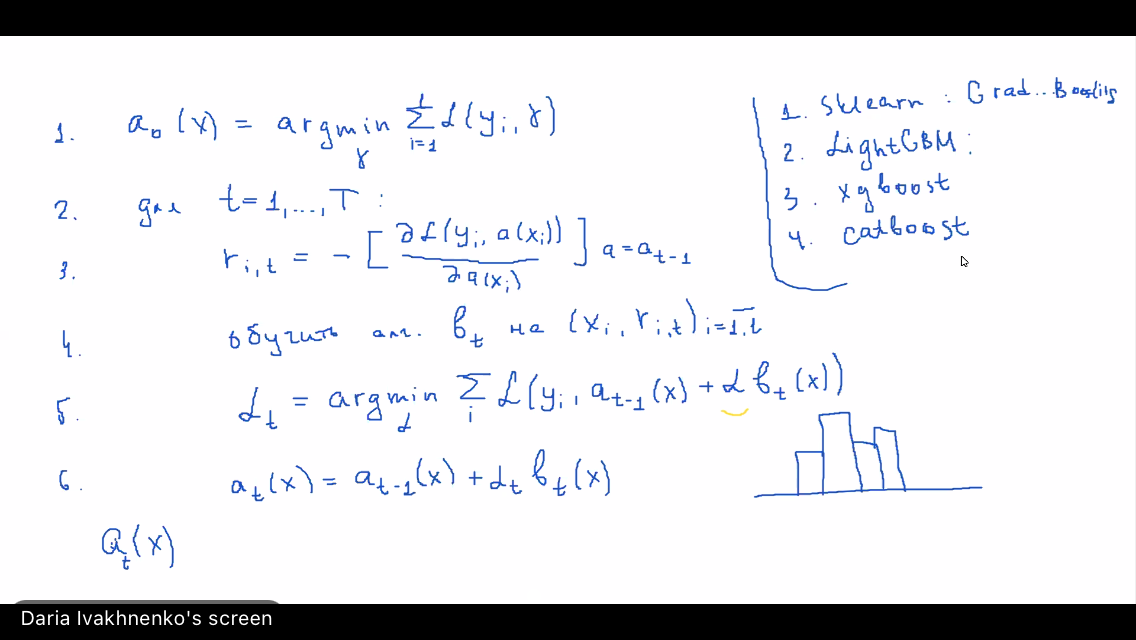 1. a₀(x) = argmin_γ Σ_{i=1}^{l} L(yᵢ, γ)
2. для t=1,...,T :
3. r_{i,t} = - [ ∂L(yᵢ, a(xᵢ)) / ∂a(xᵢ) ] a = a_{t-1}
4. обучить алг. b_t на (xᵢ, r_{i,t}) i=1,l
5. α_t = argmin_α Σ_i L(yᵢ, a_{t-1}(x) + α b_t(x))
6. a_t(x) = a_{t-1}(x) + α_t b_t(x)
a_t(x)
1. Sklearn : Grad..Boosting
2. LightGBM :
3. xgboost
4. catboost
Daria Ivakhnenko's screen